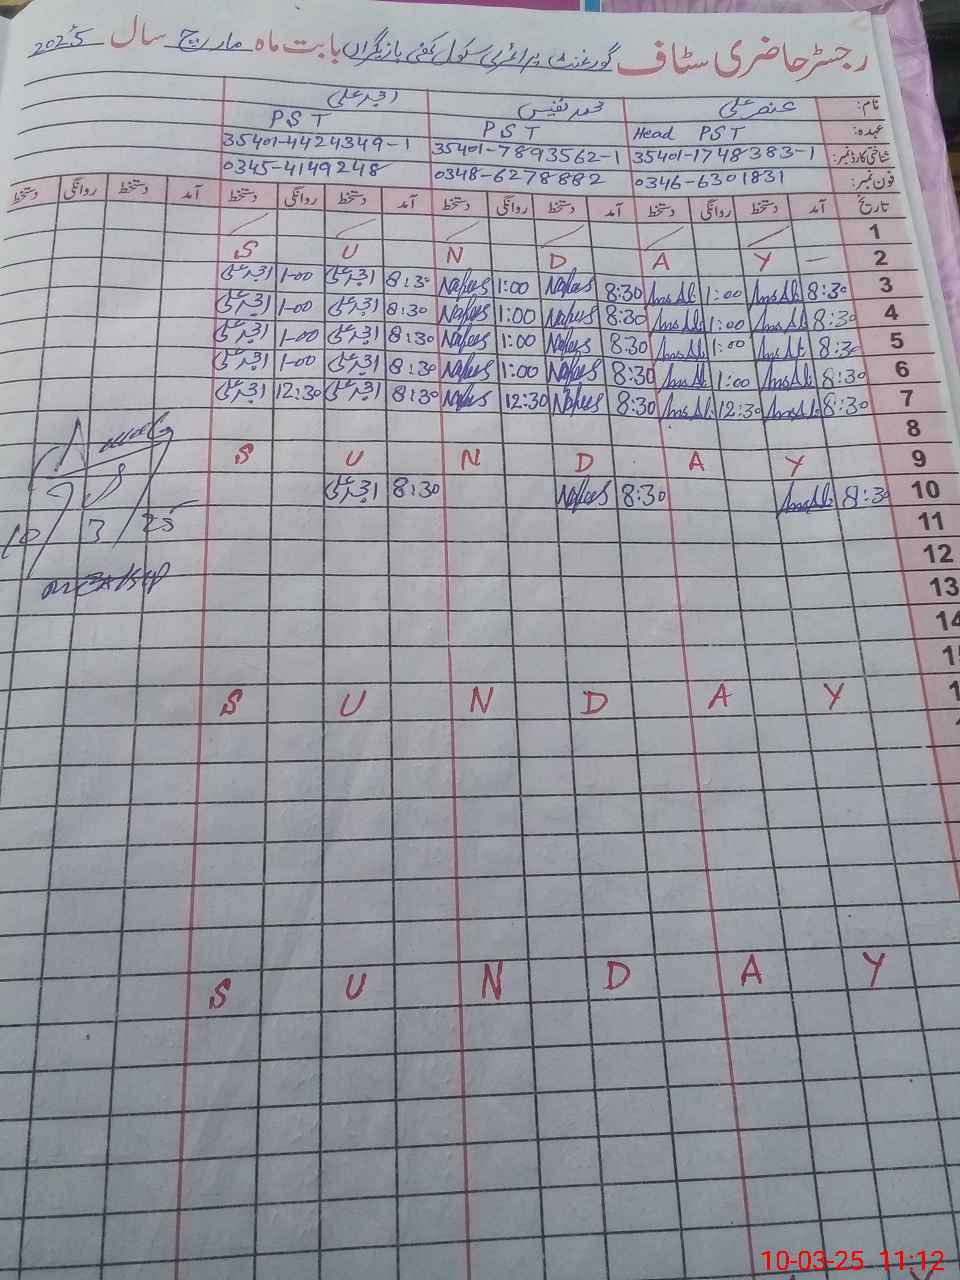 رجسٹر حاضری سٹاف گورنمنٹ پرائمری سکول کفی بازیگراں بابت ماہ مارچ سال 2025
نام: عنصر علی محمد نفیس امجد علی
عہدہ: Head PST PST PST
شناختی کارڈ نمبر: 35401-1748383-1 35401-7893562-1 35401-4424349-1
فون نمبر: 0346-6301831 0348-6278882 0345-4149248
تاریخ آمد دستخط روانگی دستخط آمد دستخط روانگی دستخط آمد دستخط روانگی دستخط آمد دستخط روانگی دستخط
1
2 S U N D A Y
3 8:30 AnsAli 1:00 AnsAli 8:30 Nafees 1:00 Nafees 8:30 امجد علی 1-00 امجد علی
4 8:30 AnsAli 1:00 AnsAli 8:30 Nafees 1:00 Nafees 8:30 امجد علی 1-00 امجد علی
5 8:30 AnsAli 1:00 AnsAli 8:30 Nafees 1:00 Nafees 8:30 امجد علی 1-00 امجد علی
6 8:30 AnsAli 1:00 AnsAli 8:30 Nafees 1:00 Nafees 8:30 امجد علی 1-00 امجد علی
7 8:30 AnsAli 12:30 AnsAli 8:30 Nafees 12:30 Nafees 8:30 امجد علی 12:30 امجد علی
8
9 S U N D A Y
10 8:30 AnsAli 8:30 Nafees 8:30 امجد علی
10/3/25
11
12
13
14
S U N D A Y
S U N D A Y
10-03-25 11:12